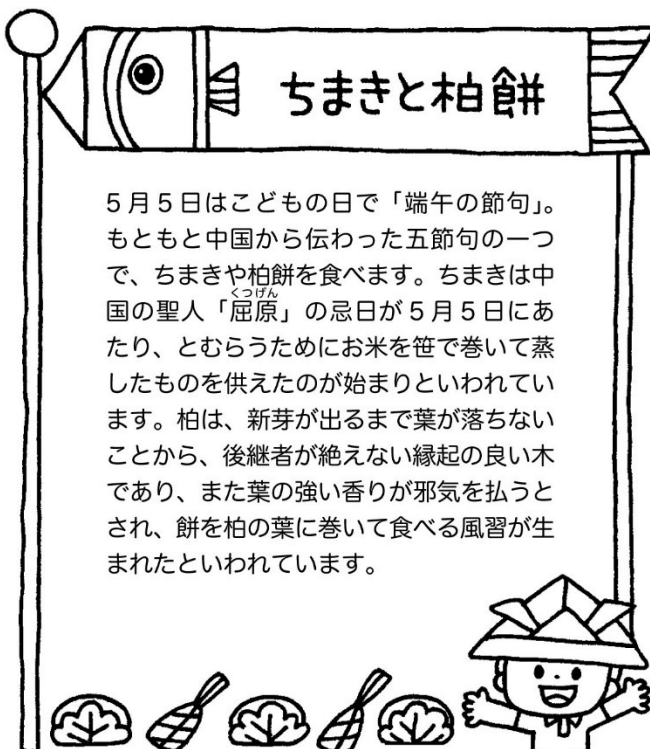 ちまきと柏餅
5月5日はこどもの日で「端午の節句」。
もともと中国から伝わった五節句の一つ
で、ちまきや柏餅を食べます。ちまきは中
くつげん
国の聖人「屈原」の忌日が5月5日にあ
たり、とむらうためにお米を笹で巻いて蒸
したものを供えたのが始まりといわれてい
ます。柏は、新芽が出るまで葉が落ちない
ことから、後継者が絶えない縁起の良い木
であり、また葉の強い香りが邪気を払うと
され、餅を柏の葉に巻いて食べる風習が生
まれたといわれています。